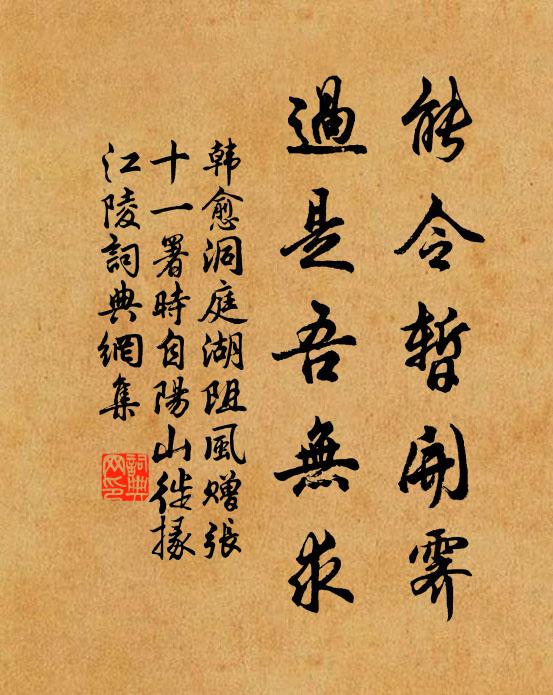 能令暫開霽
過是吾無求
韩愈洞庭湖阻風贈張
十一署時自陽山徙掾
江陵詞典網集
詞典
网印